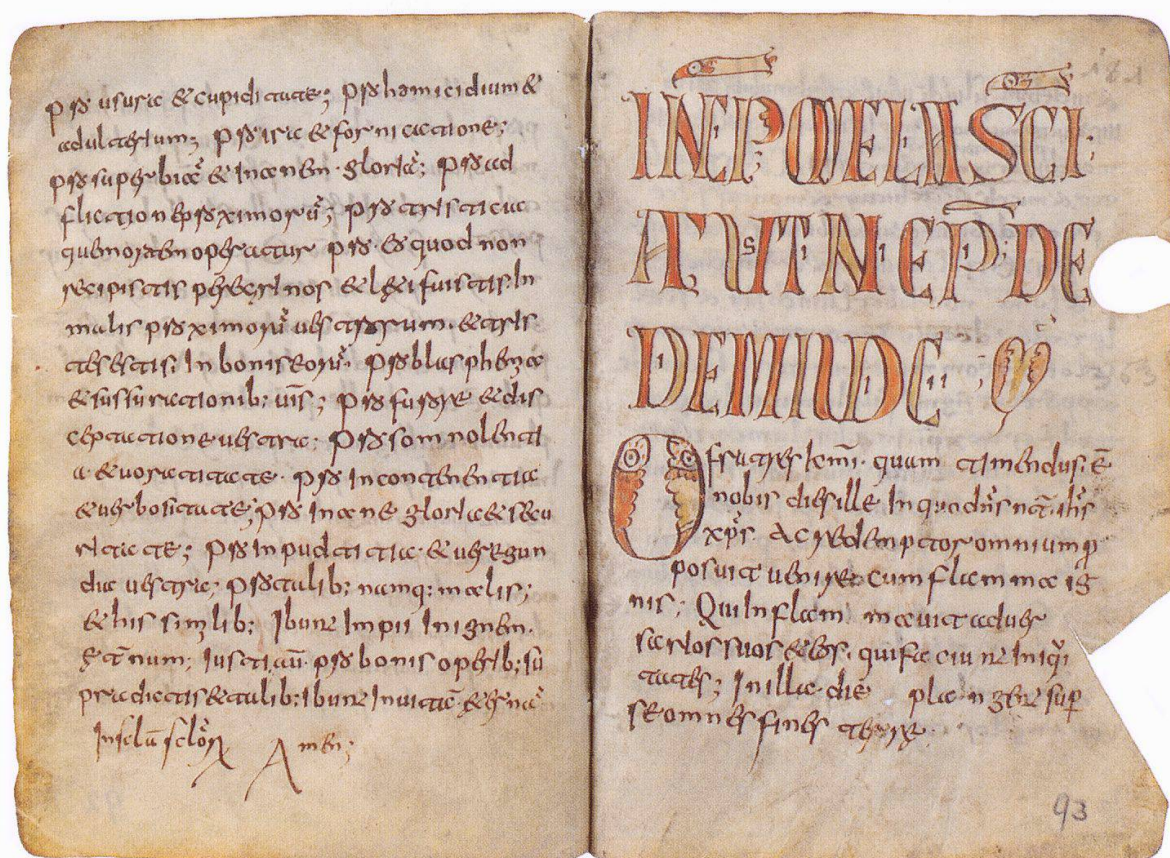 ꝓ usuræ & cupiditate; ꝓ homicidium &
adulterium; ꝓ ira & fornicatione;
ꝓ superbiā & inanem gloriā; ꝓ ad
flictione ꝓximorū; ꝓ tristitia
quę mortem operatur ꝓ eo quod non
recipistis peregrinos & læti fuistis in
malis ꝓximorū uestrorum & tris
tes estis in bonis eorū. ꝓ blasphemia
& susurrationib; uīs; ꝓ furore & dis
ceptatione uestra; ꝓ somnolenti
a & uoracitate. ꝓ incontenentia
& uerbositate; ꝓ inane gloria &
ꝓ inpudicitia & uerecun
dia uestra; ꝓ talib; namq; malis;
& his similib; Ibunt impii in ignem
ęt̄num; Iusti aū ꝓ bonis operib; su
pradictis & talib; ibunt in uitā &ernā
in sclā sclōꝝ Amen;
181
IN EPOELIA SCI
AUTNEP DE
DE MUDE
O fratres kmī. quam timendus ē
nobis dies ille in quo dn̄s nt̄ ihs
xp̄s. Ac redemptor omnium ꝓ
posuit uenire cum flamma ig
nis; Qui in flamma uit aduer
sarios suos & eos. qui faciunt iniqui
tates; In illa die plangent sup
se omnes fines terræ
93